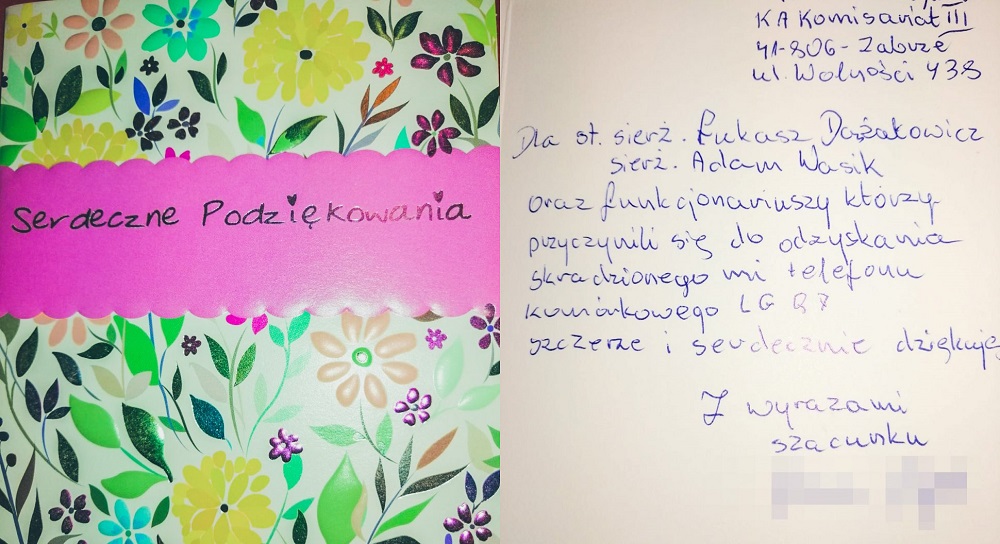 Serdeczne Podziękowania
KA Komisariat III
41-806 - Zabrze
ul. Wolności 438
Dla st. sierż. Łukasz Dażakowicz
sierż. Adam Wasik
oraz funkcjonariuszy którzy
przyczynili się do odzyskania
skradzionego mi telefonu
komórkowego LG Q7
szczerze i serdecznie dziękuję
Z wyrazami
szacunku